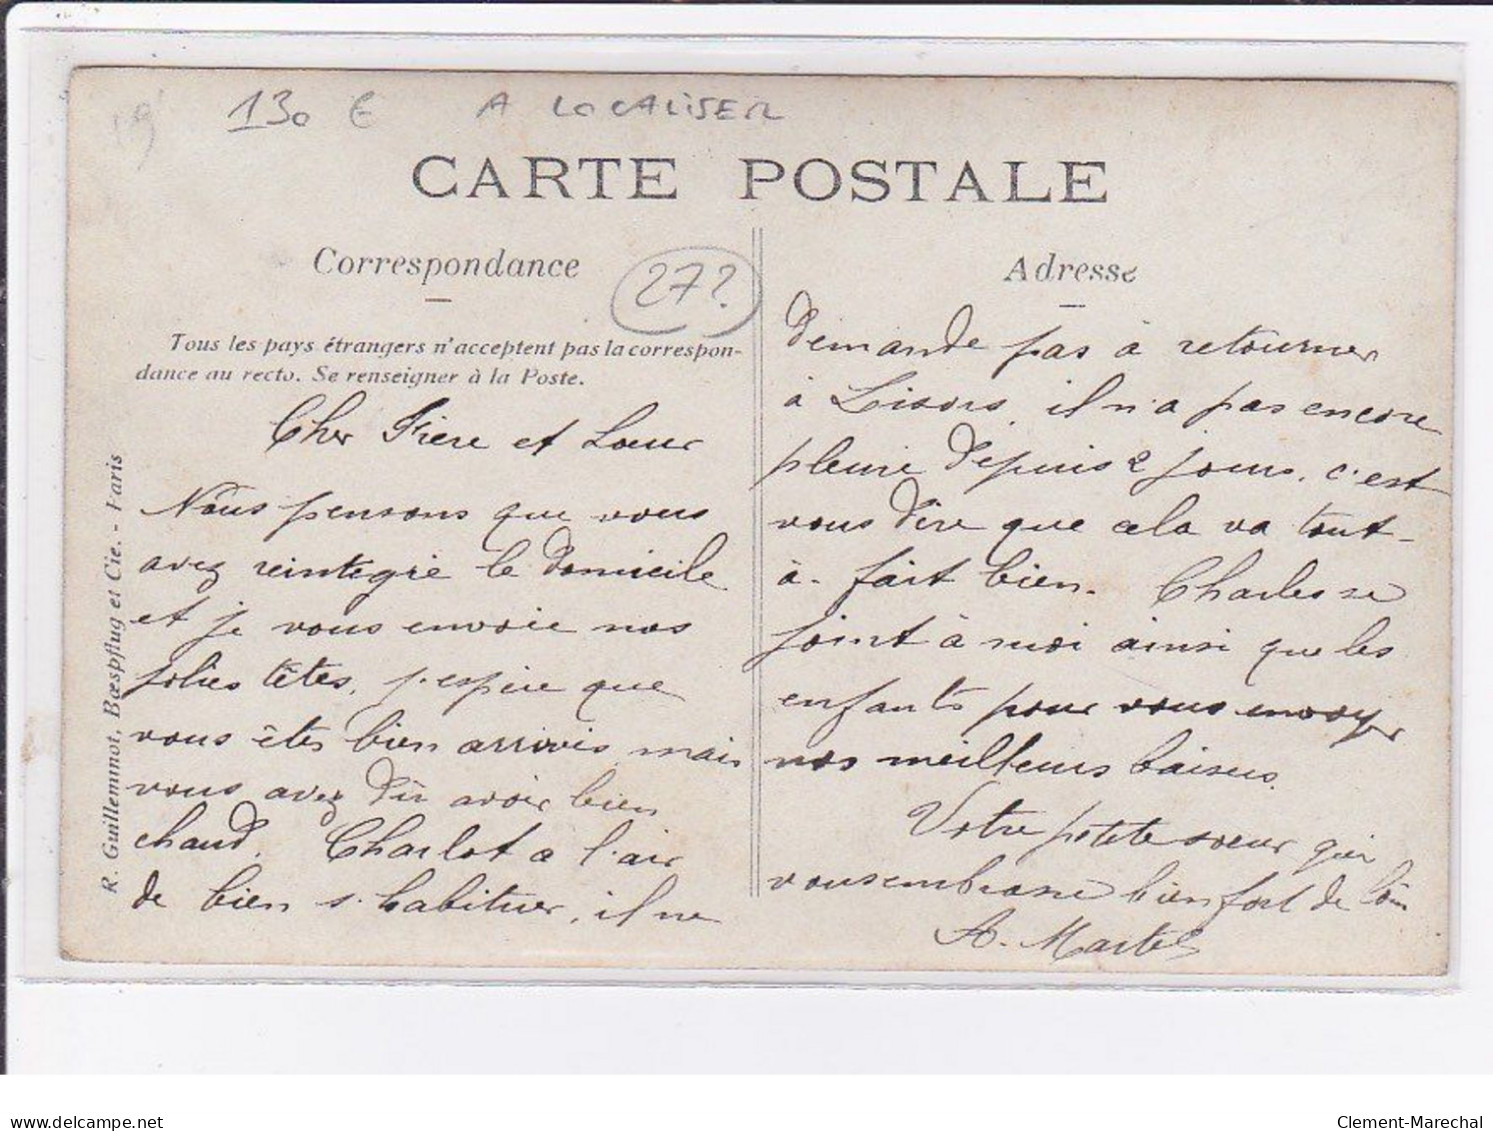 130 € A LOCALISER
CARTE POSTALE
Correspondance
27?
Tous les pays étrangers n'acceptent pas la correspon-
dance au recto. Se renseigner à la Poste.
Cher Frère et Sœur
Nous pensons que vous
avez reintegré le domicile
et je vous envoie nos
jolies têtes, j'espère que
vous êtes bien arrivés mais
vous avez dû avoir bien
chaud. Charlot a l'air
de bien s'habituer, il ne
R. Guillemnot, Bœspflug et Cie. - Paris
Adresse
demande pas à retourner
à Lisors, il n'a pas encore
pleuré depuis 2 jours, c'est
vous dire que cela va tout-
à-fait bien. Charles se
joint à moi ainsi que les
enfants pour vous envoyer
nos meilleurs baisers.
Votre petite sœur qui
vous embrasse bien fort de loin
A. Martel
delcampe.net
Clement-Marechal